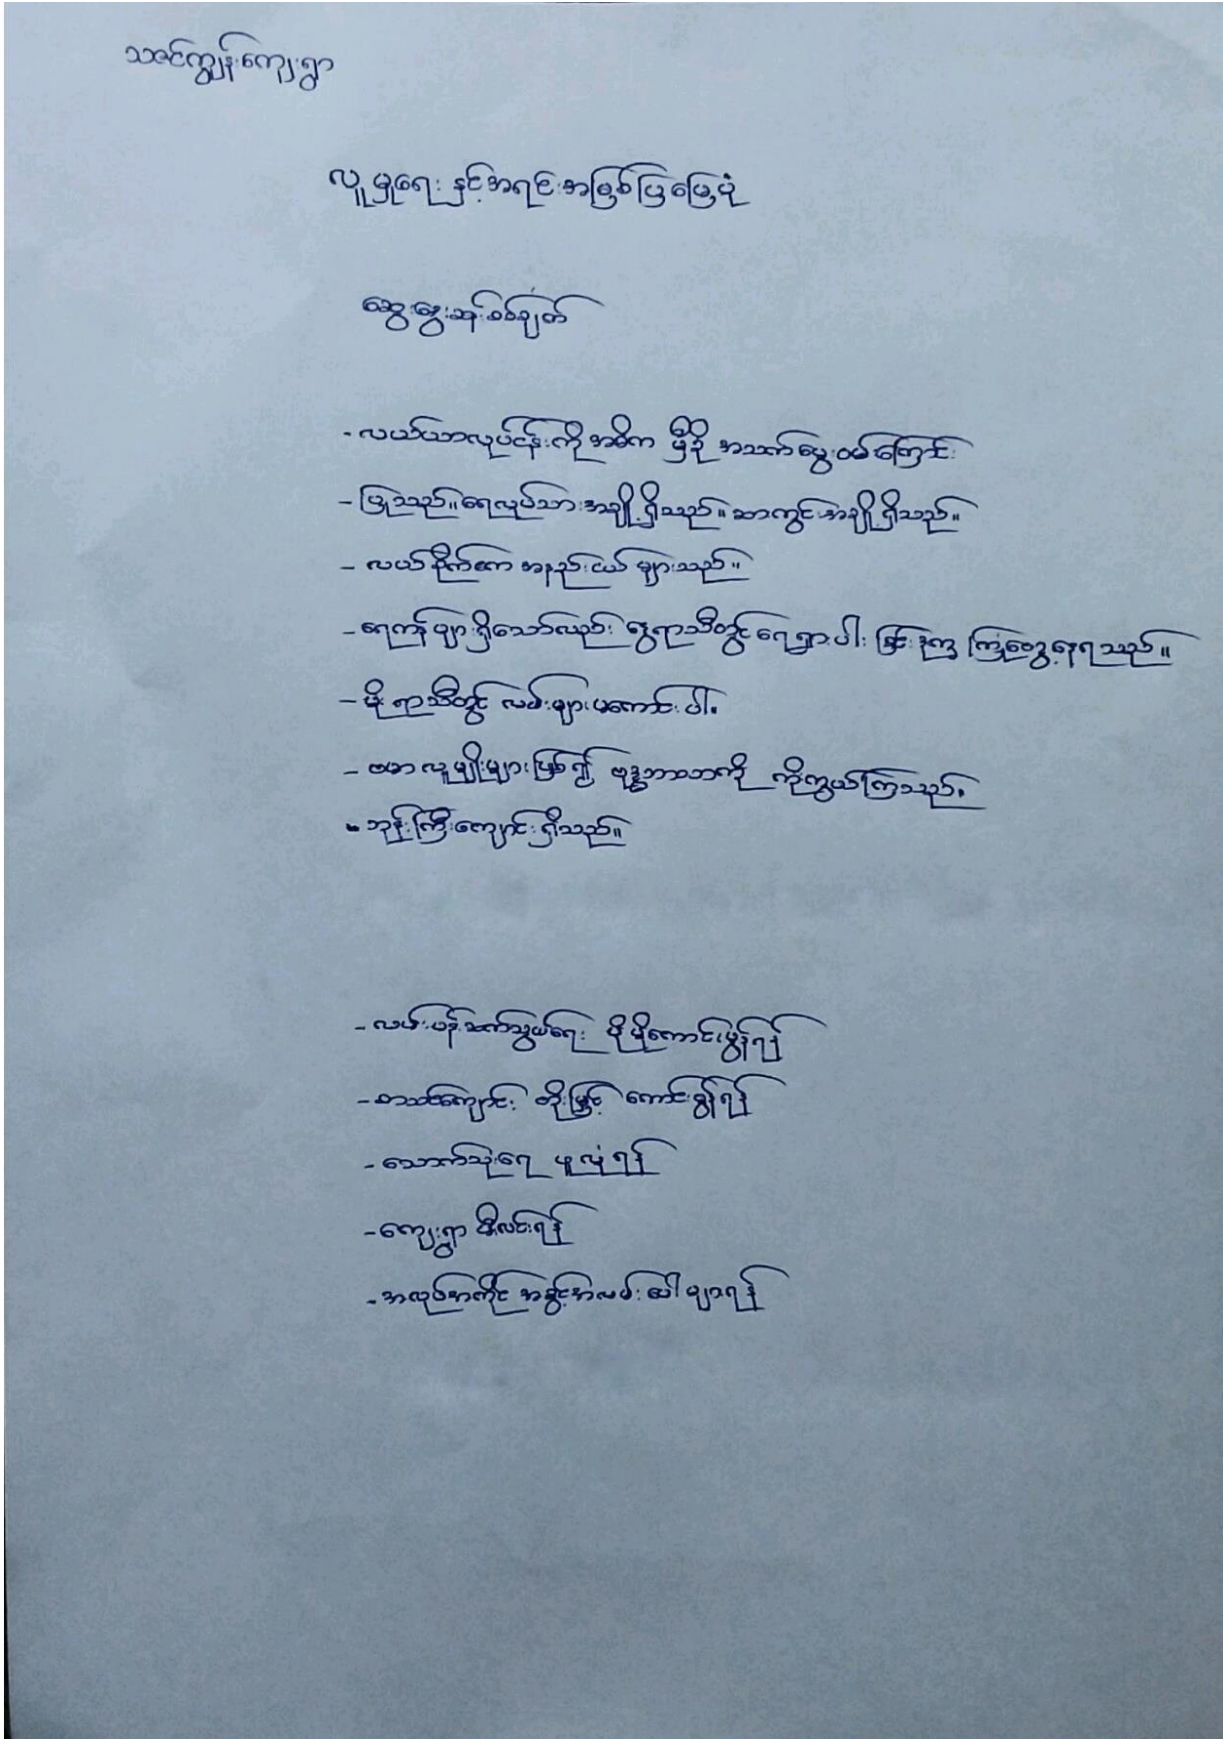 သဇင်ကျွန်းကျေးရွာ
လူမှုရေး နှင့်အရင်းအမြစ်ပြမြေပုံ
ဆွေးနွေးဆန်းစစ်ချက်
- လယ်ယာလုပ်ငန်းကို အဓိက မှီခို အသက်မွေးဝမ်းကြောင်း
- ပြုသည်။ ရေလုပ်သားအချို့ရှိသည်။ ဆားကွင်းအချို့ရှိသည်။
- လယ်စိုက်ဧက အနည်းငယ် များသည်။
- ရေကန်များရှိသော်လည်း နွေရာသီတွင် ရေရှားပါး ခြင်းဒုက္ခ ကြုံတွေ့နေရသည်။
- မိုးရာသီတွင် လမ်းများမကောင်းပါ။
- ဗမာလူမျိုးများဖြစ်၍ ဗုဒ္ဓဘာသာကို ကိုးကွယ်ကြသည်။
- ဘုန်းကြီးကျောင်းရှိသည်။
- လမ်းပန်းဆက်သွယ်ရေး ပိုမိုကောင်းမွန်ရန်
- စာသင်ကျောင်း တိုးမြှင့် ကောင်းမွန်ရန်
- သောက်သုံးရေ ဖူလုံရန်
- ကျေးရွာ မီးလင်းရန်
- အလုပ်အကိုင် အခွင့်အလမ်း ပေါများရန်